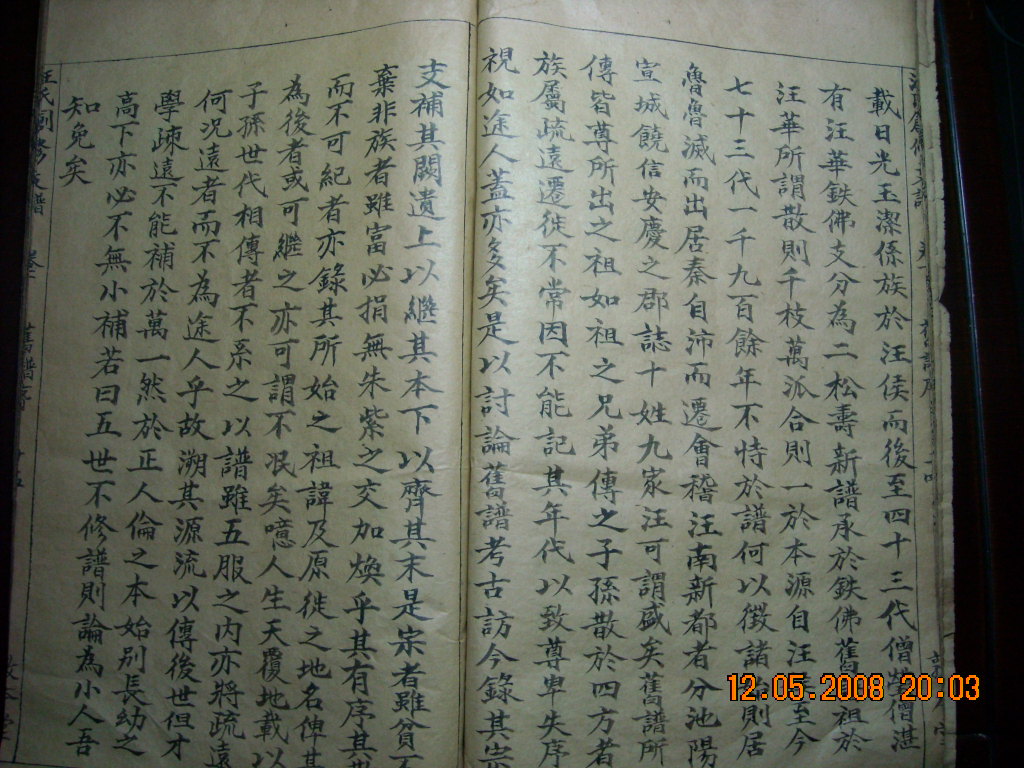 載日光玉潔係族於汪侯而後至四十三代僧瑩僧湛
有汪華鉄佛支分為二松壽新譜承於鉄佛舊祖於
汪華所謂散則千枝萬派合則一於本源自汪至今
七十三代一千九百餘年不恃於譜何以徵諸則居
魯魯滅而出居秦自沛而遷會稽汪南新都者分池陽
宣城饒信安慶之郡誌十姓九家汪可謂盛矣舊譜所
傳皆尊所出之祖如祖之兄弟傳之子孫散於四方者
族屬疏遠遷徙不常因不能記其年代以致尊卑失序
視如途人蓋亦多矣是以討論舊譜考古訪今錄其宗
支補其闕遺上以繼其本下以齊其末是宗者雖貧不
棄非族者雖富必捐無朱紫之交加煥乎其有序其世
而不可紀者亦錄其所始之祖諱及原徙之地名俾其
為後者或可繼之亦可謂不泯矣噫人生天覆地載以
子孫世代相傳者不系之以譜雖五服之內亦將疏遠
何況遠者而不為途人乎故溯其源流以傳後世但才
學疎遠不能補於萬一然於正人倫之本始別長幼之
高下亦必不無小補若曰五世不修譜則論為小人吾
知免矣
汪氏 修支譜 卷一 舊譜序
12.05.2008 20:03